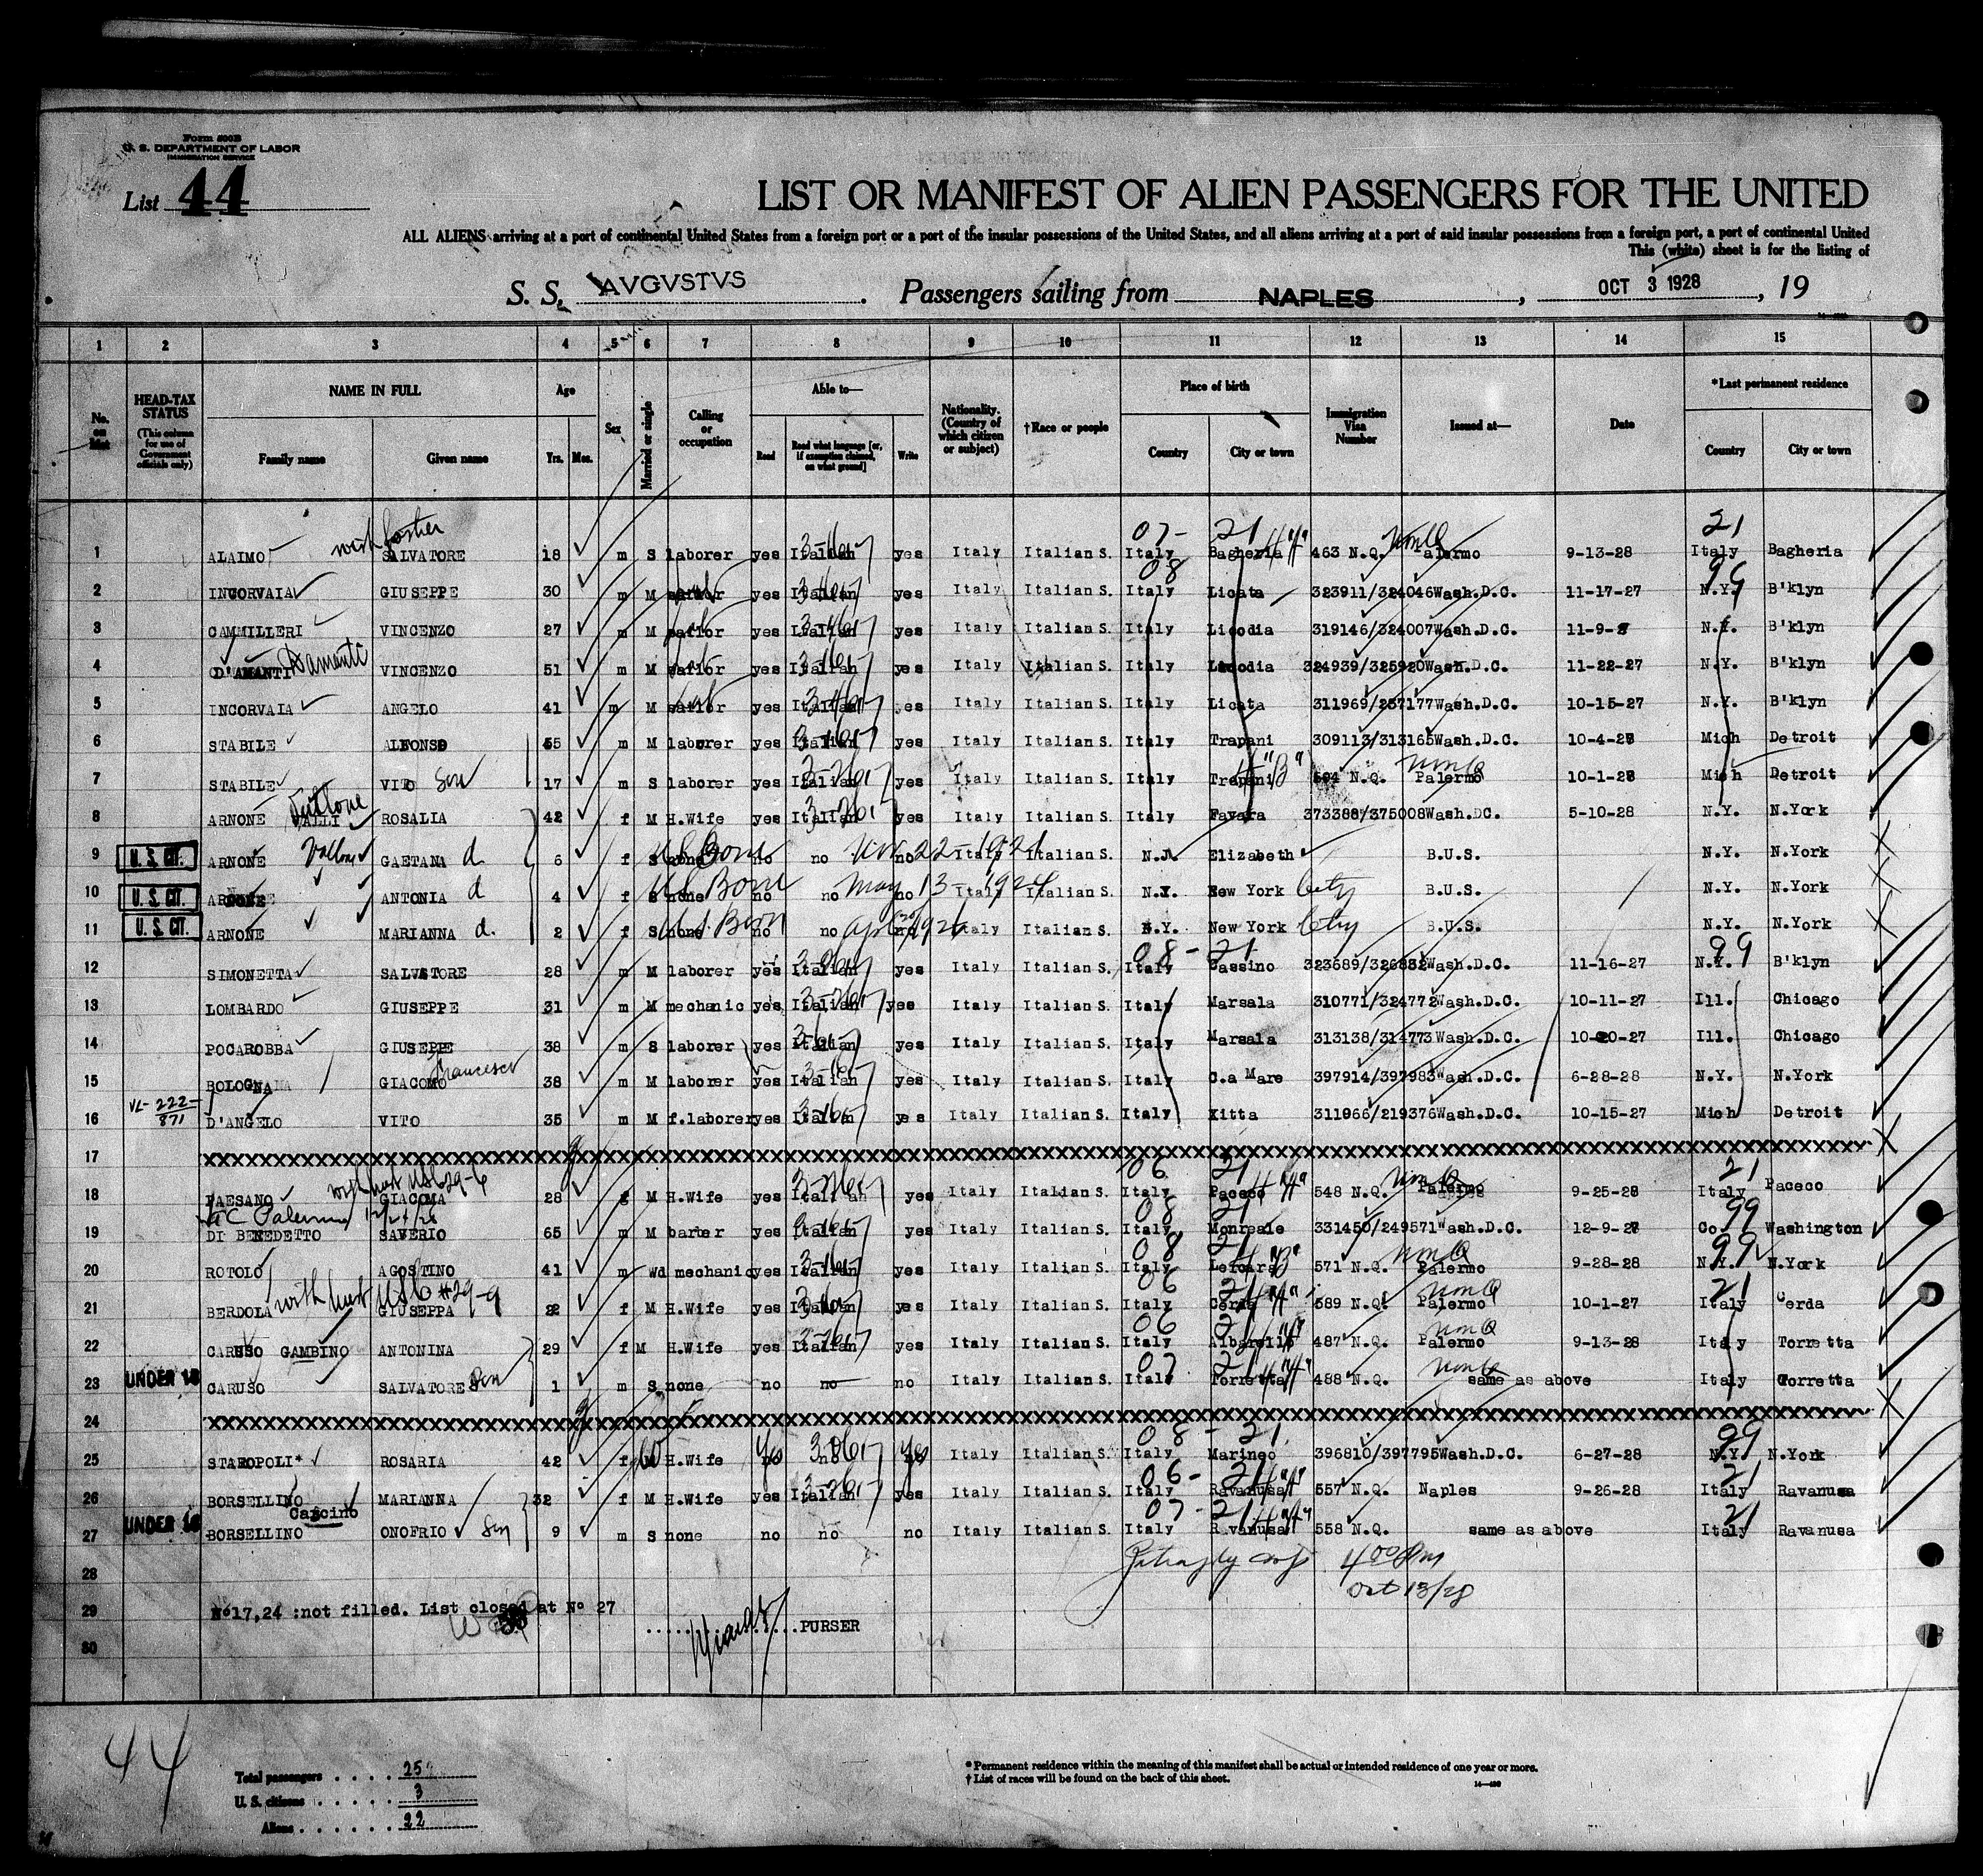 Form 500B
U. S. DEPARTMENT OF LABOR
IMMIGRATION SERVICE
List 44
LIST OR MANIFEST OF ALIEN PASSENGERS FOR THE UNITED
ALL ALIENS arriving at a port of continental United States from a foreign port or a port of the insular possessions of the United States, and all aliens arriving at a port of said insular possessions from a foreign port, a port of continental United
This (white) sheet is for the listing of
S. S. AVGVSTVS. Passengers sailing from NAPLES, OCT 3 1928, 19
1 2 3 4 5 6 7 8 9 10 11 12 13 14 15
No. on List
HEAD-TAX STATUS (This column for use of Government officials only)
NAME IN FULL Family name Given name
Age Yrs. Mos.
Sex
Married or single
Calling or occupation
Able to— Read Read what language [or, if exemption claimed, on what ground] Write
Nationality. (Country of which citizen or subject)
†Race or people
Place of birth Country City or town
Immigration Visa Number
Issued at—
Date
*Last permanent residence Country City or town
07- 21 21
1 ALAIMO SALVATORE 18 m S laborer yes Italian yes Italy Italian S. Italy Bagheria 463 N.Q. Palermo 9-13-28 Italy Bagheria
08 99
2 INCORVAIA GIUSEPPE 30 m M yes Italian yes Italy Italian S. Italy Licata 323911/324046 Wash.D.C. 11-17-27 N.Y. B'klyn
3 CAMMILLERI VINCENZO 27 m M sailor yes Italian yes Italy Italian S. Italy Licodia 319146/324007 Wash.D.C. 11-9- N.Y. B'klyn
4 D'AMANTI Damanti VINCENZO 51 m M sailor yes Italian yes Italy Italian S. Italy Licodia 324939/325920 Wash.D.C. 11-22-27 N.Y. B'klyn
5 INCORVAIA ANGELO 41 m M sailor yes Italian yes Italy Italian S. Italy Licata 311969/257177 Wash.D.C. 10-15-27 N.Y. B'klyn
6 STABILE ALFONSO 55 m M laborer yes Italian yes Italy Italian S. Italy Trapani 309113/313165 Wash.D.C. 10-4-28 Mich Detroit
7 STABILE VITO Son 17 m S laborer yes Italian yes Italy Italian S. Italy Trapani "B" 504 N.Q. Palermo 10-1-28 Mich Detroit
8 ARNONE ROSALIA 42 f M H.Wife yes Italian yes Italy Italian S. Italy Favara 373388/375008 Wash.DC. 5-10-28 N.Y. N.York
9 U. S. CIT. ARNONE GAETANA d 6 f S none U.S. Born no no no Italy Italian S. N.J. Elizabeth B.U.S. N.Y. N.York
10 U. S. CIT. ARNONE ANTONIA d 4 f S none U.S. Born no no May 13-1924 no Italy Italian S. N.Y. New York City B.U.S. N.Y. N.York
11 U. S. CIT. ARNONE MARIANNA d. 2 f S none U.S. Born no no no Italy Italian S. N.Y. New York City B.U.S. N.Y. N.York
08 - 21 99
12 SIMONETTA SALVATORE 28 m M laborer yes Italian yes Italy Italian S. Italy Cassino 323689/326832 Wash.D.C. 11-16-27 N.Y. B'klyn
13 LOMBARDO GIUSEPPE 31 m M mechanic yes Italian yes Italy Italian S. Italy Marsala 310771/324772 Wash.D.C. 10-11-27 Ill. Chicago
14 POCAROBBA GIUSEPPE 38 m S laborer yes Italian yes Italy Italian S. Italy Marsala 313138/314773 Wash.D.C. 10-20-27 Ill. Chicago
15 BOLOGNA GIACOMO Francesco 38 m M laborer yes Italian yes Italy Italian S. Italy C.a Mare 397914/397983 Wash.D.C. 6-28-28 N.Y. N.York
VL-222-871
16 D'ANGELO VITO 35 m M f.laborer yes Italian yes Italy Italian S. Italy Kitta 311966/219376 Wash.D.C. 10-15-27 Mich Detroit
17
06 21 21
18 PAESANO GIACOMA 28 f M H.Wife yes Italian yes Italy Italian S. Italy Paceco 548 N.Q. Palermo 9-25-28 Italy Paceco
08 21 99
19 DI BENEDETTO SAVERIO 65 m M barber yes Italian yes Italy Italian S. Italy Monreale 331450/249571 Wash.D.C. 12-9-27 Co Washington
08 21 99
20 ROTOLO AGOSTINO 41 m Wd mechanic yes Italian yes Italy Italian S. Italy Lercara 571 N.Q. Palermo 9-28-28 N.Y. N.York
06 21 21
21 BERDOLA GIUSEPPA 22 f M H.Wife yes Italian yes Italy Italian S. Italy Cerda 589 N.Q. Palermo 10-1-27 Italy Cerda
06 21
22 CARUSO GAMBINO ANTONINA 29 f M H.Wife yes Italian yes Italy Italian S. Italy 487 N.Q. Palermo 9-13-28 Italy Torretta
07 21
23 CARUSO SALVATORE Son 1 m S none no no no Italy Italian S. Italy Torretta 488 N.Q. same as above Italy Torretta
24
08 - 21 99
25 STAROPOLI* ROSARIA 42 f H.Wife Yes Yes Italy Italian S. Italy Marineo 396810/397795 Wash.D.C. 6-27-28 N.Y. N.York
06- 21 21
26 BORSELLINO Cascino MARIANNA 32 f M H.Wife yes Italian yes Italy Italian S. Italy Ravanusa 557 N.Q. Naples 9-26-28 Italy Ravanusa
07-21 21
27 BORSELLINO ONOFRIO Son 9 m S none no no no Italy Italian S. Italy Ravanusa 558 N.Q. same as above Italy Ravanusa
28 4 00 Pm
Oct 13/28
29 No 17,24 :not filled. List closed at No 27
PURSER
30
44
Total passengers . . . . 25
U. S. citizens . . . . . 3
Aliens . . . . . . 22
*Permanent residence within the meaning of this manifest shall be actual or intended residence of one year or more.
†List of races will be found on the back of this sheet.